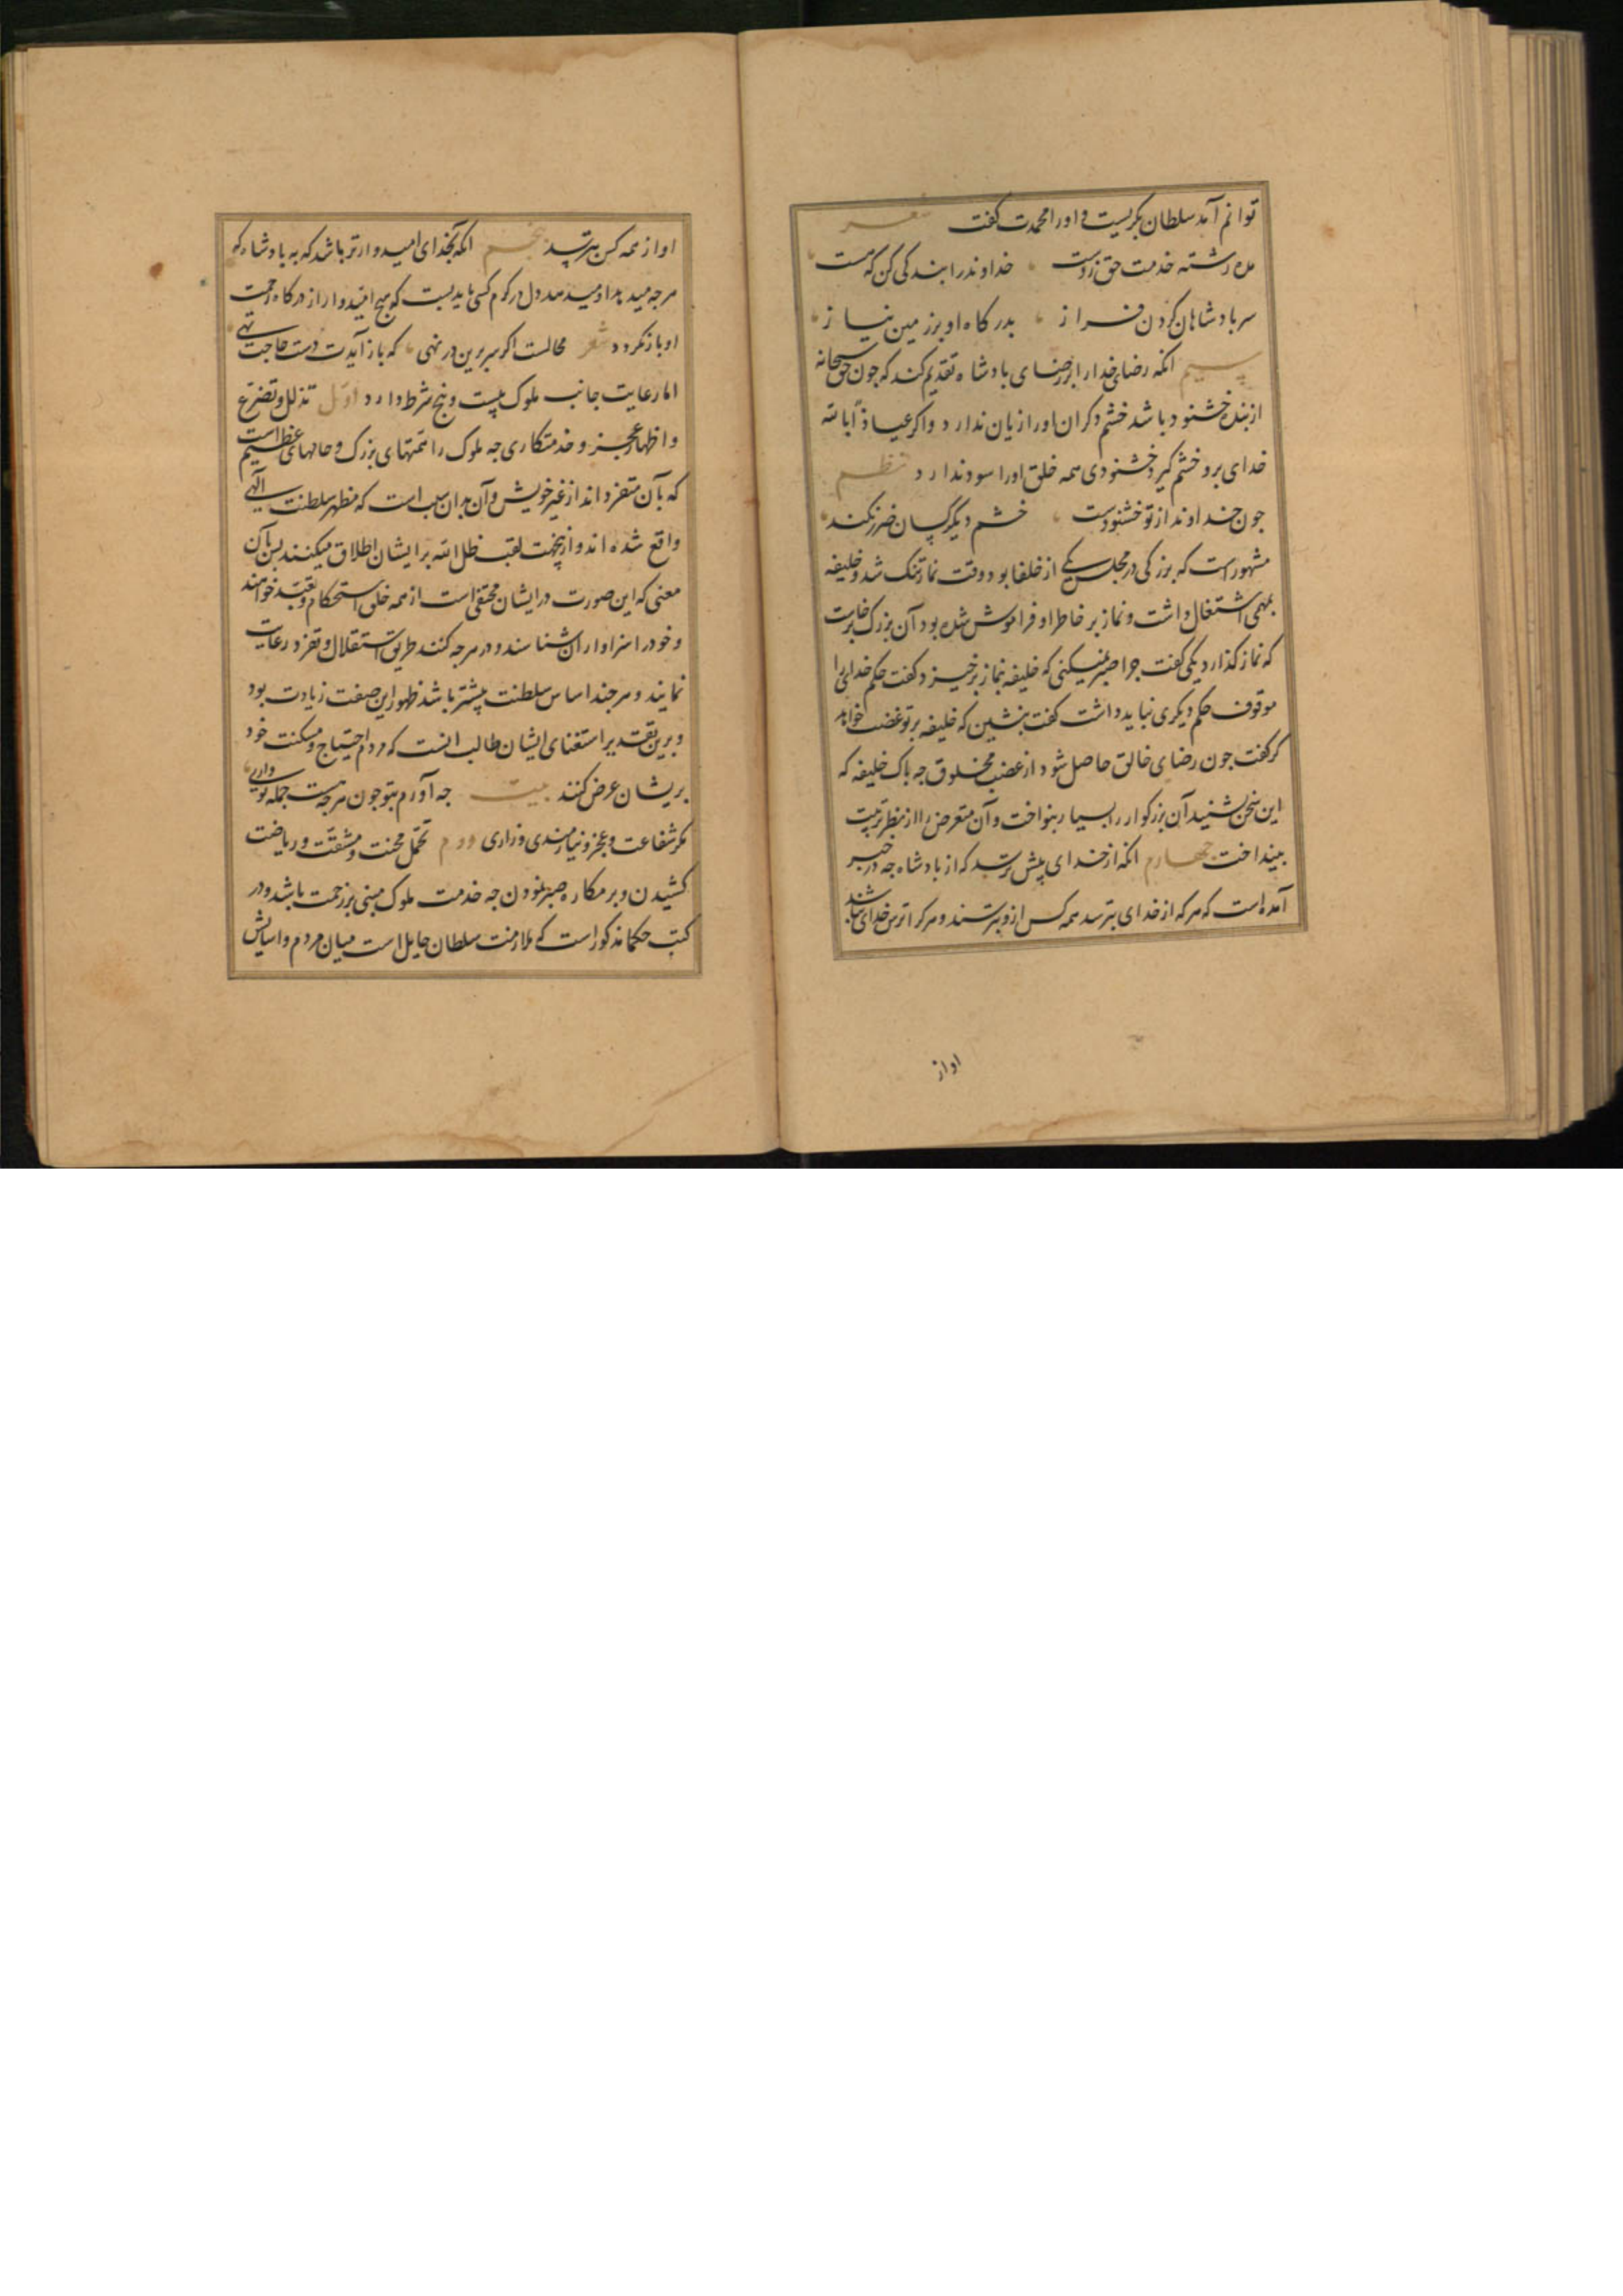 توانم آمد سلطان بکریست و اورا محمدت کفت شعر
مده رشته خدمت حق زدست خداوند را بندکی کن که هست
سر بادشاهان کردن فراز بدرکاه او بر زمین نیاز
سیم انکه رضای خدارا بر رضای بادشاه تقدیم کند که جون حق سبحانه
از بنده خشنود باشد خشم دکران اورا زیان ندارد واکر عیاذاً بالله
خدای برو خشم کیرد خشنودی همه خلق اورا سود ندارد نظم
جون خداوند از تو خشنودست خشم دیکر کسان ضرر نکند
مشهور است که بزرکی در مجلس یکی از خلفا بود وقت نماز تنک شد و خلیفه
بمهمی اشتغال داشت و نماز بر خاطر او فراموش شده بود آن بزرک برخاست
که نماز کذارد یکی کفت جرا صبر نمیکنی که خلیفه بنماز برخیزد کفت حکم خدایرا
موقوف حکم دیکری نباید داشت کفت بنشین که خلیفه بر تو غضب خواهد
کرد کفت جون رضای خالق حاصل شود از غضب مخلوق جه باک خلیفه که
این سخن بشنید آن بزرکوار را بسیار بنواخت و آن متعرض را از نظر تربیت
بینداخت جهارم انکه از خدای بیش ترسد که از بادشاه جه در خبر
آمده است که هر که از خدای بترسد همه کس ازو بترسند و هر کرا ترس خدای نباشد
اواز
او از همه کس بترسد بنجم انکه بخدای امیدوارتر باشد که به بادشاه که
هرجه میدهد او میدهد دل در کرم کسی باید بست که هیج امیدوار از درکاه رحمت
او باز نکردد شعر محالست اکر سر برین در نهی که باز آیدت دست حاجت تهی
اما رعایت جانب ملوک بیست و پنج شرط دارد اول تذلل و تضرع
و اظهار عجز و خدمتکاری جه ملوک را همتهای بزرک و حالهای عظیم است
که بآن متفرد اند از غیر خویش و آن بدان سبب است که مظهر سلطنت الهی
واقع شده اند و ازینجهت لقب ظل الله بر ایشان اطلاق میکنند بس بآن
معنی که این صورت در ایشان مختفی است از همه خلق استحکام و تعبد خواهند
و خود را سزاوار آن شناسند و در هرجه کنند طریق استقلال و تفرد رعایت
نمایند و هرجند اساس سلطنت بیشتر باشد ظهور این صفت زیادت بود
و برین تقدیر استغنای ایشان طالب انست که مردم احتیاج و مسکنت خود
بریشان عرض کنند بیت جه آورم بتو جون هرجه هست جمله تو داری
مکر شفاعت و عجز و نیازمندی و زاری دوم تحمل محنت و مشقت و ریاضت
کشیدن و بر مکاره صبر نمودن جه خدمت ملوک مبنی بر زحمت باشد و در
کتب حکما مذکور است که ملازمت سلطان حایل است میان مردم و اسایش